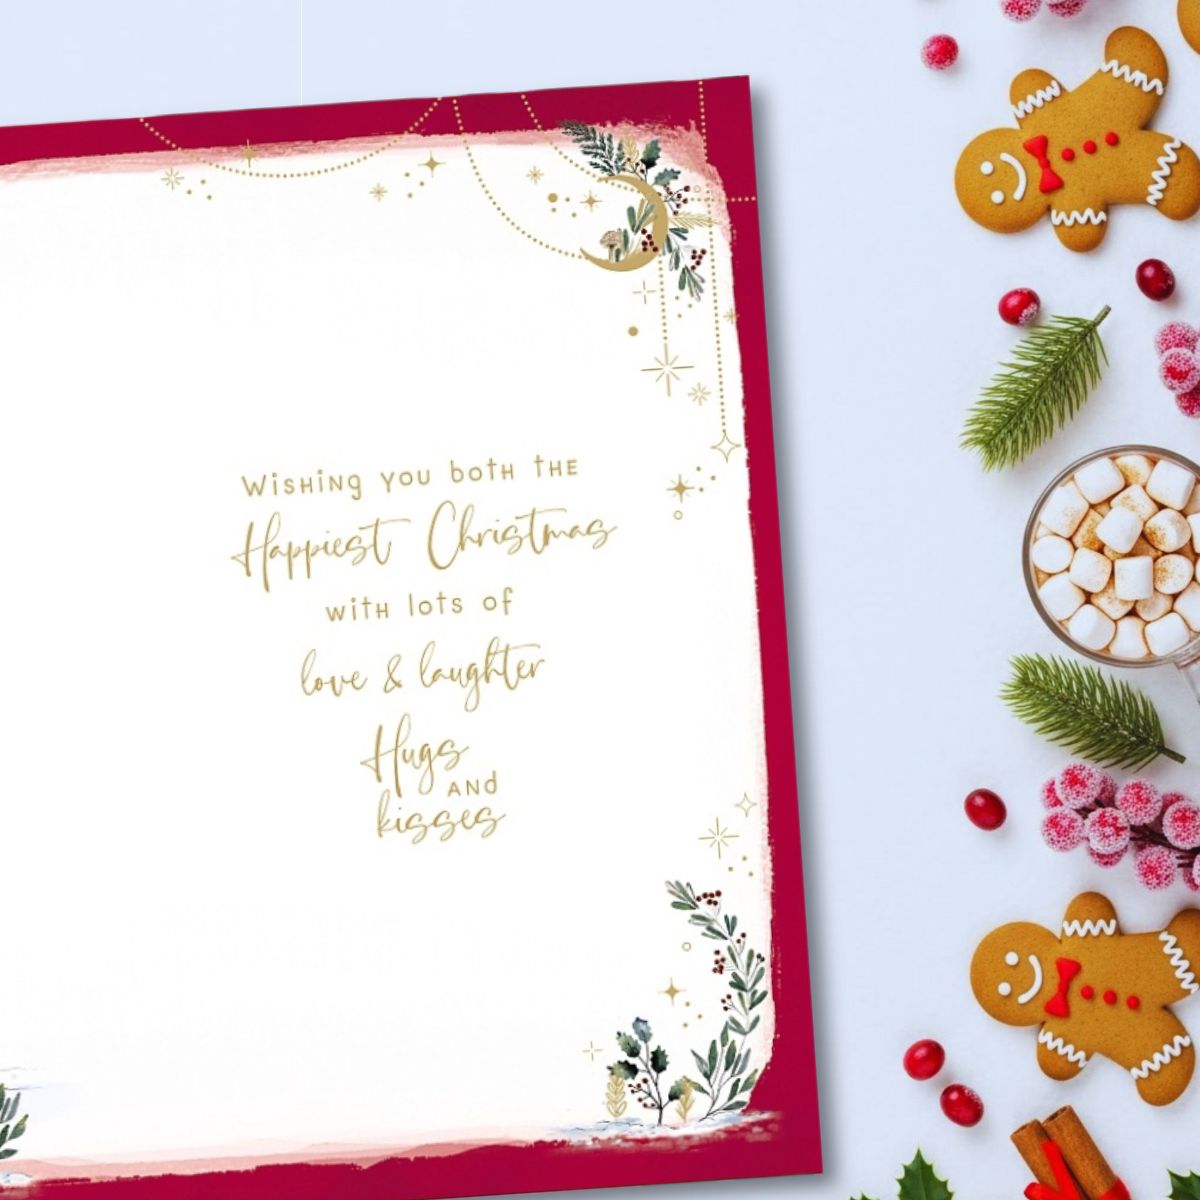 Wishing you both the
Happiest Christmas
with lots of
love & laughter
Hugs
and
kisses